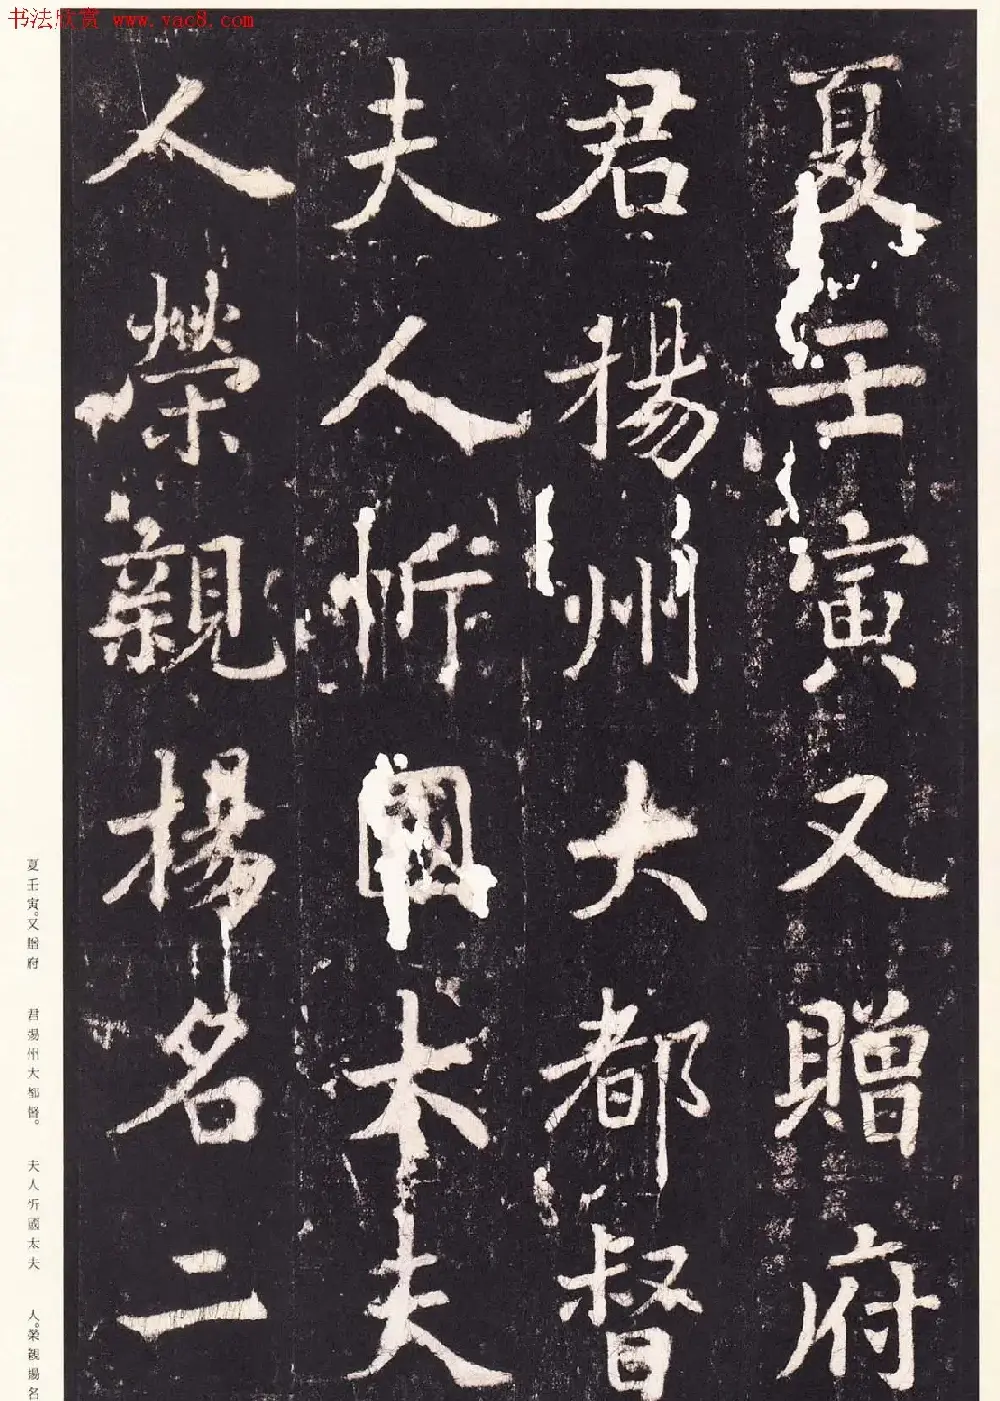 书法欣赏 www.yac8.com
夏壬寅又贈府
君揚州大都督
夫人忻國太夫
人榮親揚名二
夏壬寅。又贈府
君揚州大都督。
夫人忻國太夫
人。榮親揚名